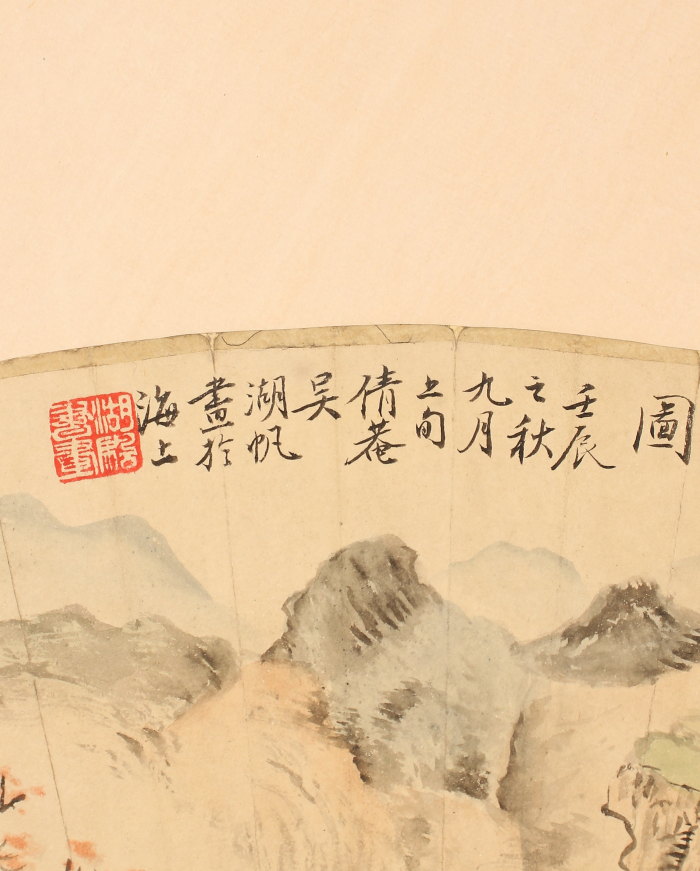 圖
壬辰
之秋
九月
上旬
倩菴
吴
湖帆
畫於
海上
湖颿
書畫